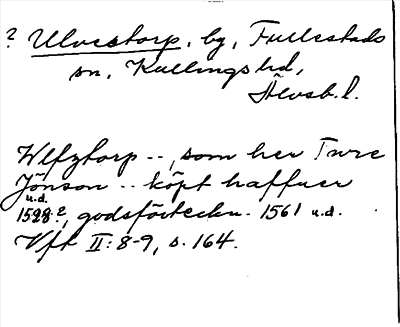 ? Ulvestorp, by, Fullestads
sn, Kullings hd,
Älvsb. l.
Wlfztorp --, som her Twre
Jönson -- köpt haffuer
u.d.
1528?, godsförteckn. 1561 u.d.
Vft II: 8-9, s. 164.